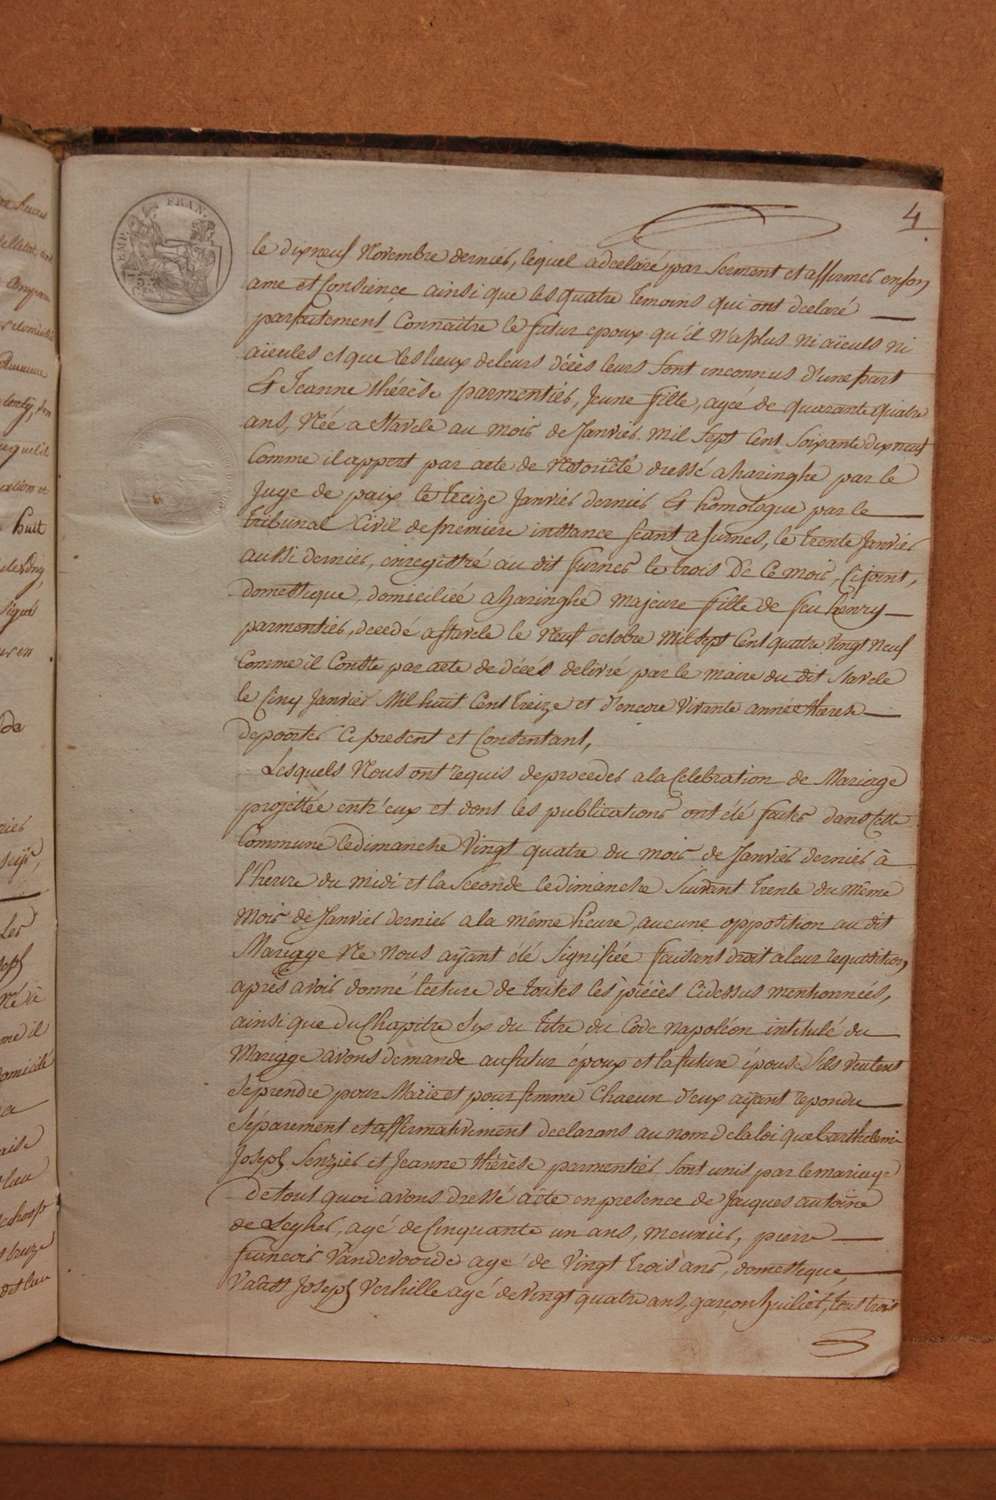 4
EMP. FRAN.
le dix neuf Novembre dernier, lequel a declaré par serment et affirmer en son
ame et Consience ainsi que les quatre temoins qui ont declaré
parfaitement Connaitre le futur epoux qu'il n'a plus ni aïeuls ni
aieules et que les lieux de leurs décès leurs sont inconnus d'une part
Et Jeanne thérèse parmentier, Jeune fille, agée de quarante quatre
ans, Née a Stavele au mois de Janvier mil Sept Cent Soixante dix neuf
Comme il appert par acte de Notoriété dressé a haringhe par le
Juge de paix le treize Janvier dernier Et homologue par le
tribunal Civil de premiere instance seant a furnes, le trente Janvier
aussi dernier, enregistré au dit furnes le trois de Ce mois, Cijoint,
domestique, domiciliée a haringhe majeure fille de feu henry
parmentier, decedé a Stavele le Neuf octobre mil Sept Cent quatre Vingt Neuf
Comme il Conste par acte de décés delivré par le maire du dit Stavele
le Cinq Janvier Mil huit Cent treize et d'encore Vivante anne therese
depoorter Ci present et Consentant,
Lesquels Nous ont requis de proceder a la Celebration de Mariage
projettée entr'eux et dont les publications ont été faites dans Cette
Commune le dimanche Vingt quatre du mois de Janvier dernier à
l'heure du midi et la seconde le dimanche Suivant trente du même
Mois de Janvier dernier a la même heure, aucune opposition au dit
Mariage Ne Nous aÿant été Signifiée faisant droit a leur requisition,
aprés avoir donné lecture de toutes les piéces Cidessus mentionnées,
ainsi que du Chapitre Six du titre du Code napoléon intitulé du
Mariage avons demande au futur époux et la future épouse s'ils veulent
se prendre pour Mari et pour femme Chacun d'eux aÿant repondu
Séparement et affirmativement declarons au nom de la loi que barthelemi
Joseph Senzier et Jeanne thérèse parmentier Sont unis par le mariage
De tout quoi avons dressé acte en presence de Jacques antoine
de Seyher, agé de Cinquante un ans, meunier, pierre
francois Vandevoorde agé de Vingt trois ans, domestique,
Vaast Joseph Verhille agé de Vingt quatre ans, garçon huilier, tous trois